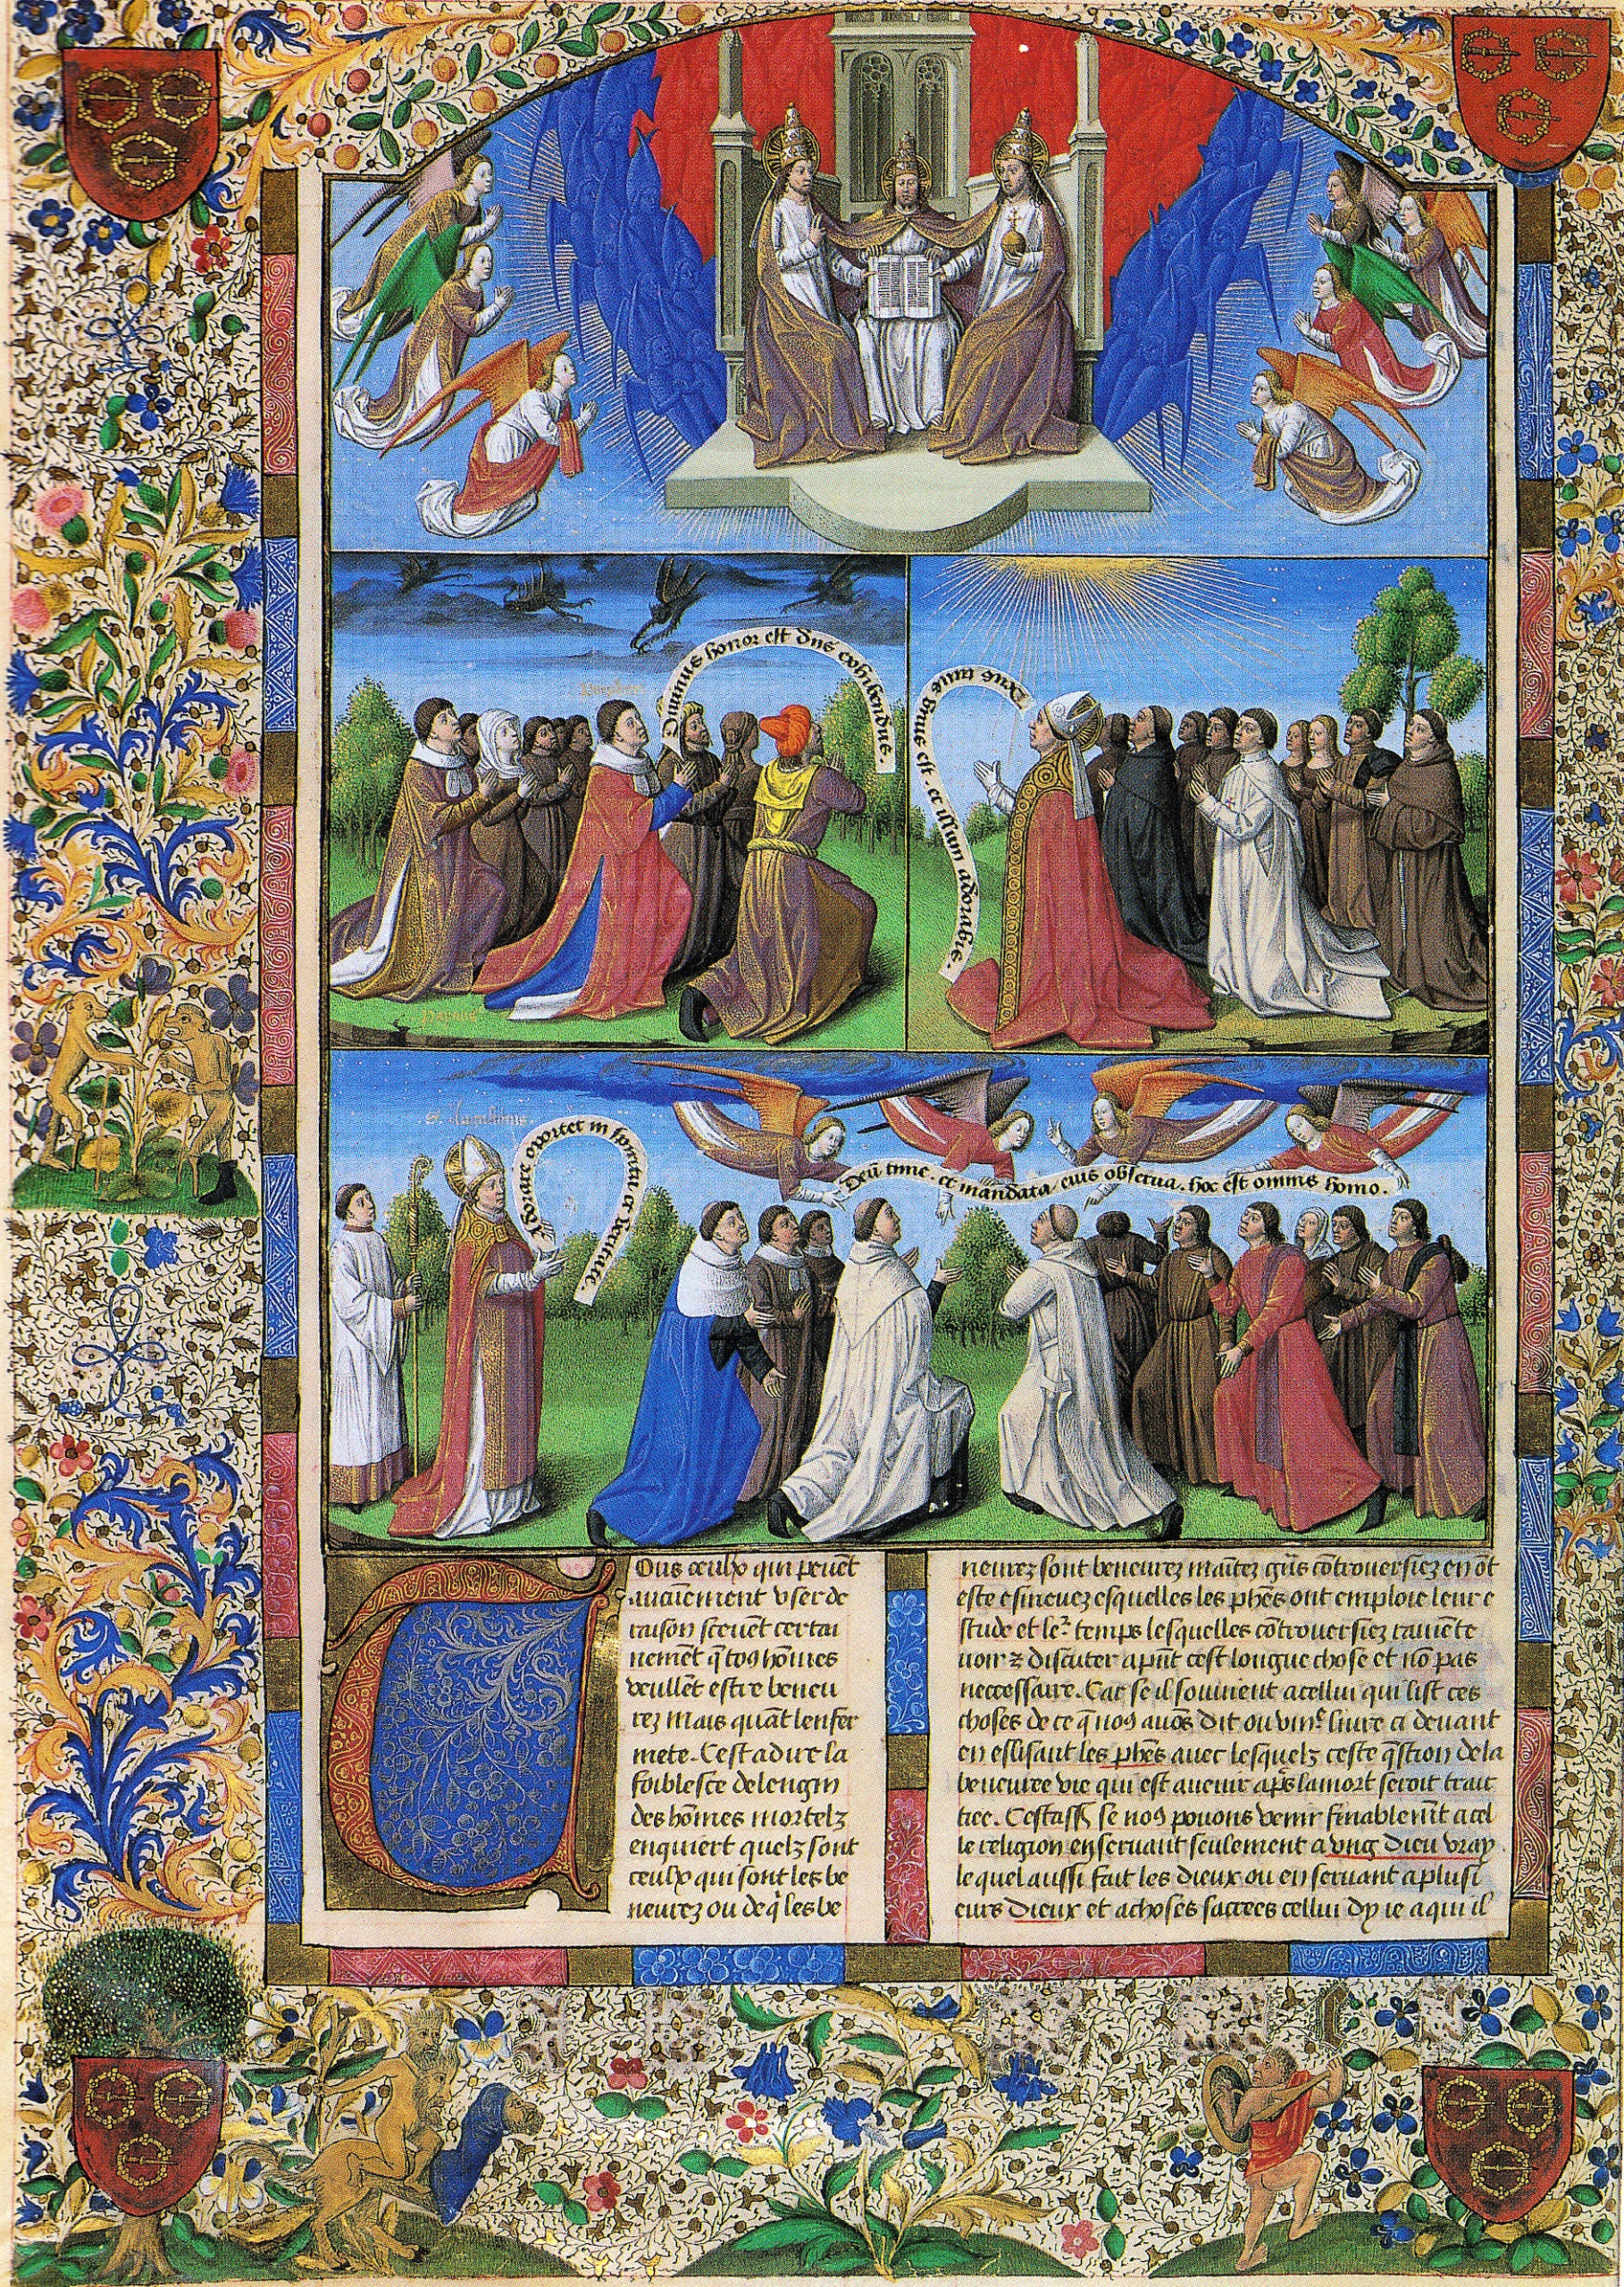 Diuinus honor est dñs cohibendus.
Xpūs timē
Unus est et illum adorabis.
S. Augustinus
Adorare oportet in spiritu et veritate.
Deū time. et mandata eius obserua. hoc est omnis homo.
Tous ceulx qui peuēt
aucunement vser de
raison sceuēt certai
nemēt q̄ to9 hōmes
veullēt estre beneu
rez Mais quāt lenfer
mete. Cest a dire la
foiblesce de lengin
des hōmes mortelz
enquiert quelz sont
ceulx qui sont les be
neurez ou de q̄ les be
neurez sont beneurez maītez grās cōtrouersiez en ōt
este esmeuez esquelles les phēs ont emploie leur e
stude et le² temps lesquelles cōtrouersiez ramete
uoir z discuter apñt cest longue chose et nō pas
neccessaire. Car se il souuient a cellui qui list ces
choses de ce q̄ no9 auōs dit ou viii.e liure ci deuant
en eslisant les phēs auec lesquelz ceste q̄stion de la
beneuree vie qui est auenir ap̄s la mort seroit trait
tiee. Cestass̄ se no9 pouons venir finablemt a cel
le religion en seruant seulement a vng dieu vray
le quel aussi fait les dieux ou en seruant a plusi
eurs dieux et a choses sacrees cellui dy ie a qui il